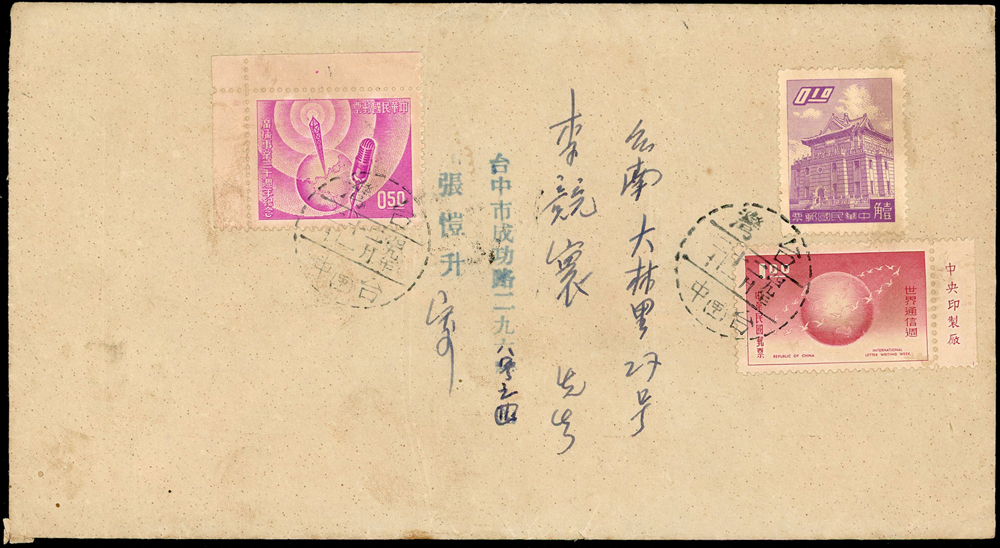 台南大林里27号
李競寰先生
台中市成功路二九六
張愷升
寄
中華民國郵票
廣播事業三十週年紀念
0.50
0.10
中華民國郵票
1.20
世界通信週
中華民國郵票
REPUBLIC OF CHINA
INTERNATIONAL
LETTER WRITING WEEK
中央印製廠
台灣
台中
台灣
台中